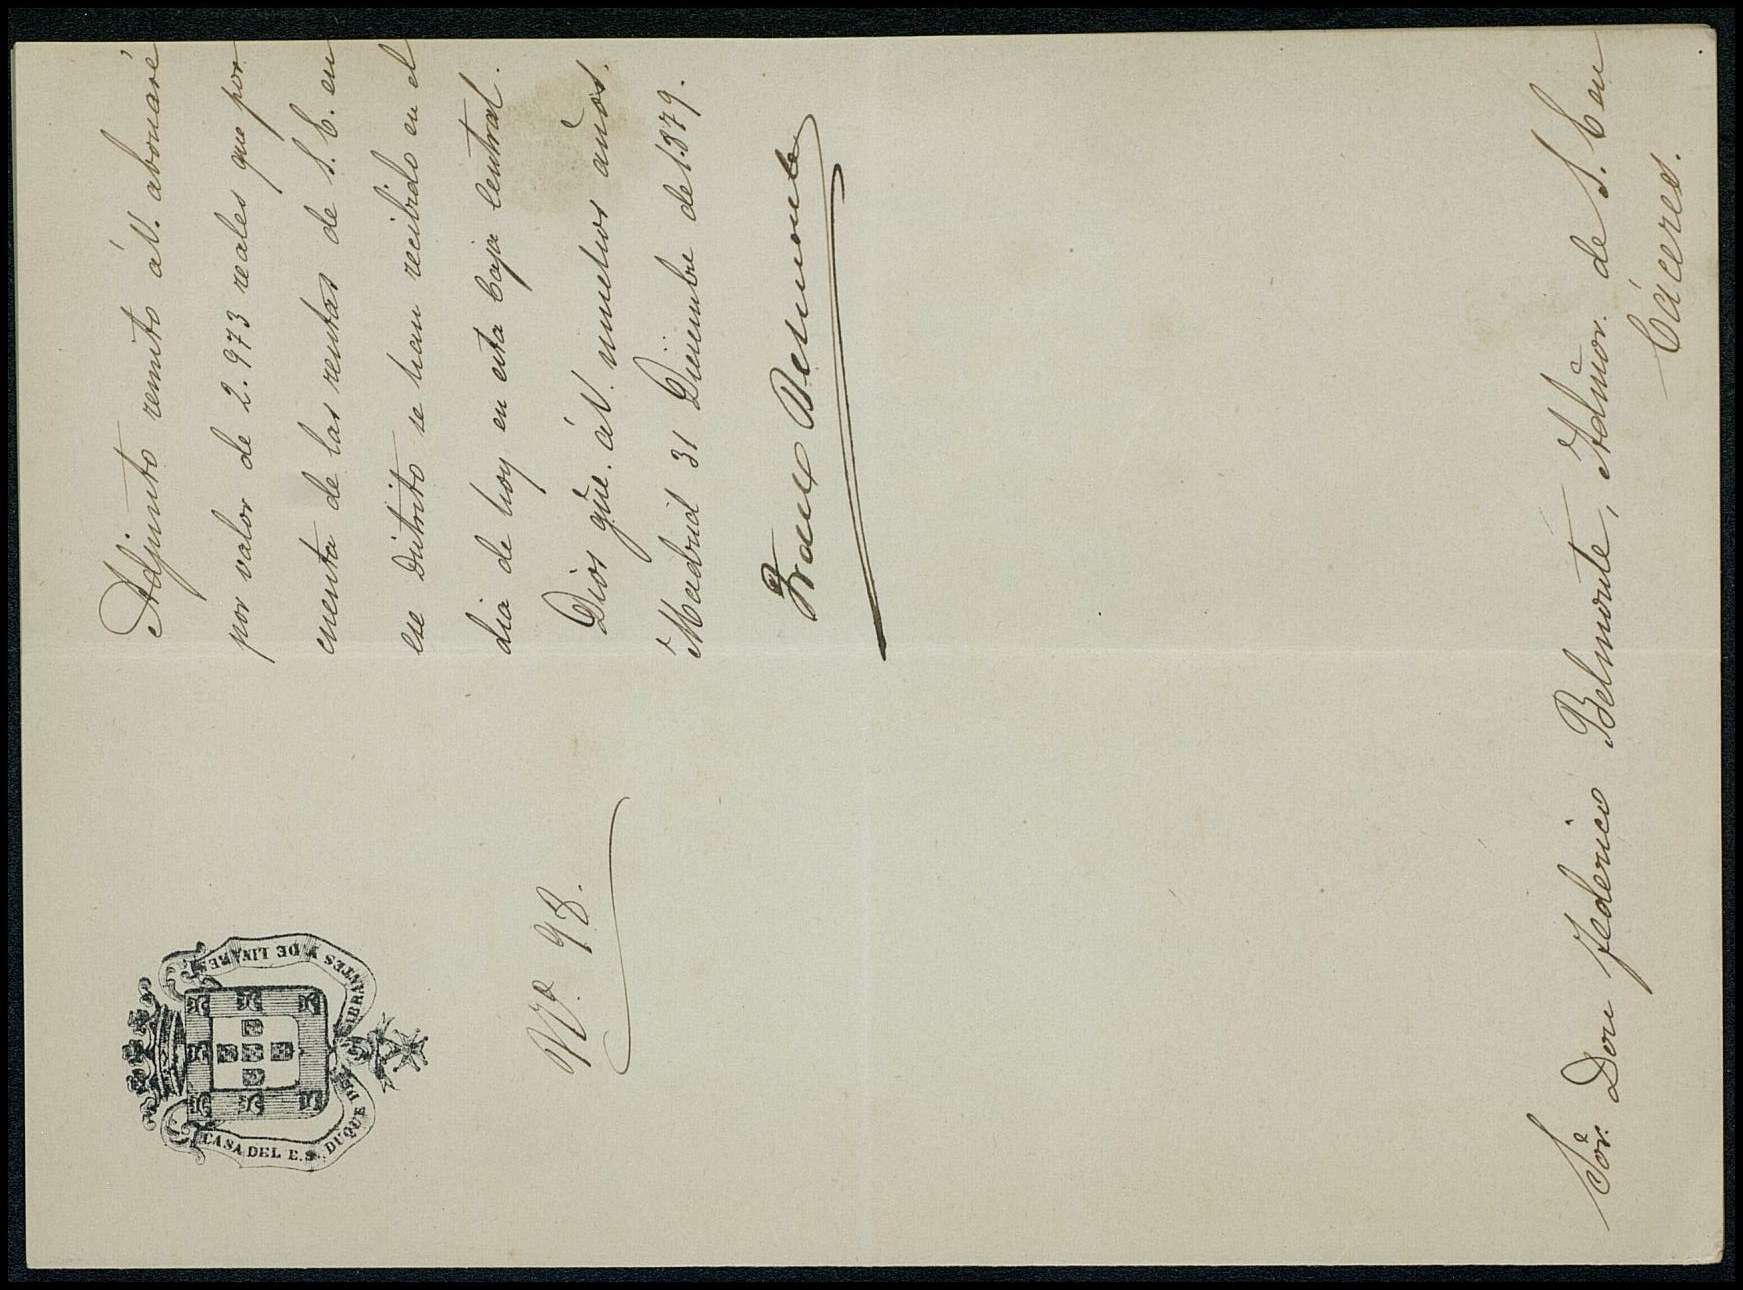 CASA DEL E.S. DUQUE DE ABRANTES Y DE LINARES
Nº. 98.
Adjunto remito á V. abonaré
por valor de 2.973 reales que por
cuenta de las rentas de S. E. en
ese Distrito se han recibido en el
dia de hoy en esta Caja Central.
Dios gũe. á V. muchos años.
Madrid 31 Diciembre de 1.879.
Franco Belmonte
Sõr. Don Federico Belmonte, Adm̃or. de S. E. en
Cáceres.